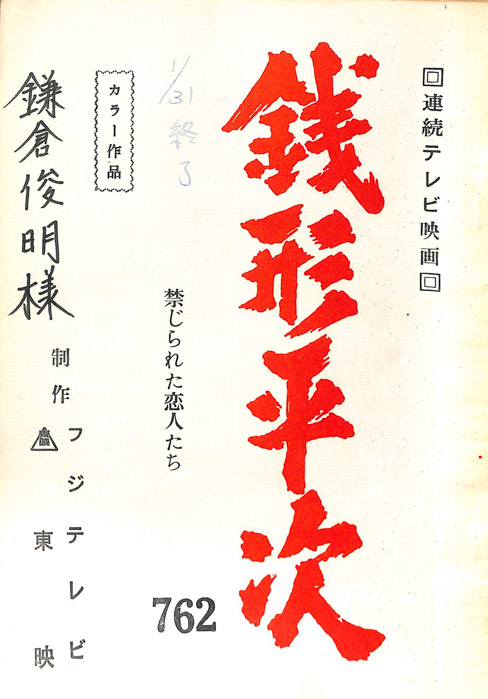 回連続テレビ映画回
銭形平次
762
禁じられた恋人たち
1/31終了
カラー作品
制作 フジテレビ
東映
鎌倉俊明様